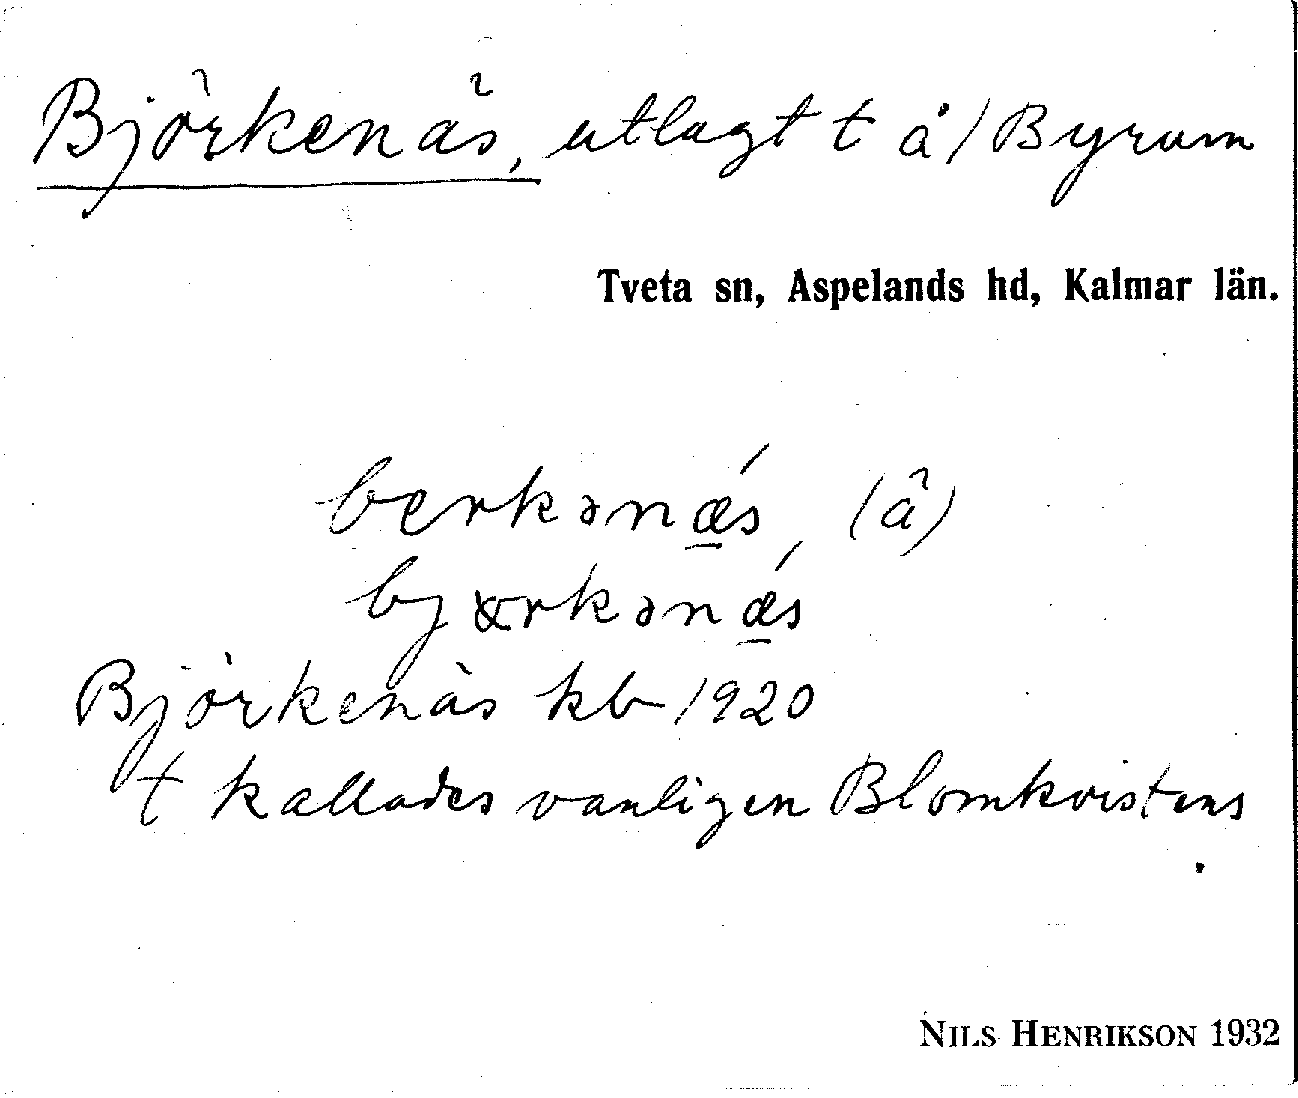 Björkenäs, utlagt t å/Byrum
Tveta sn, Aspelands hd, Kalmar län.
berkənǽs, (â)
bjɤrkənǽs
Björkenäs kb 1920
t kallades vanligen Blomkvistens
NILS HENRIKSON 1932